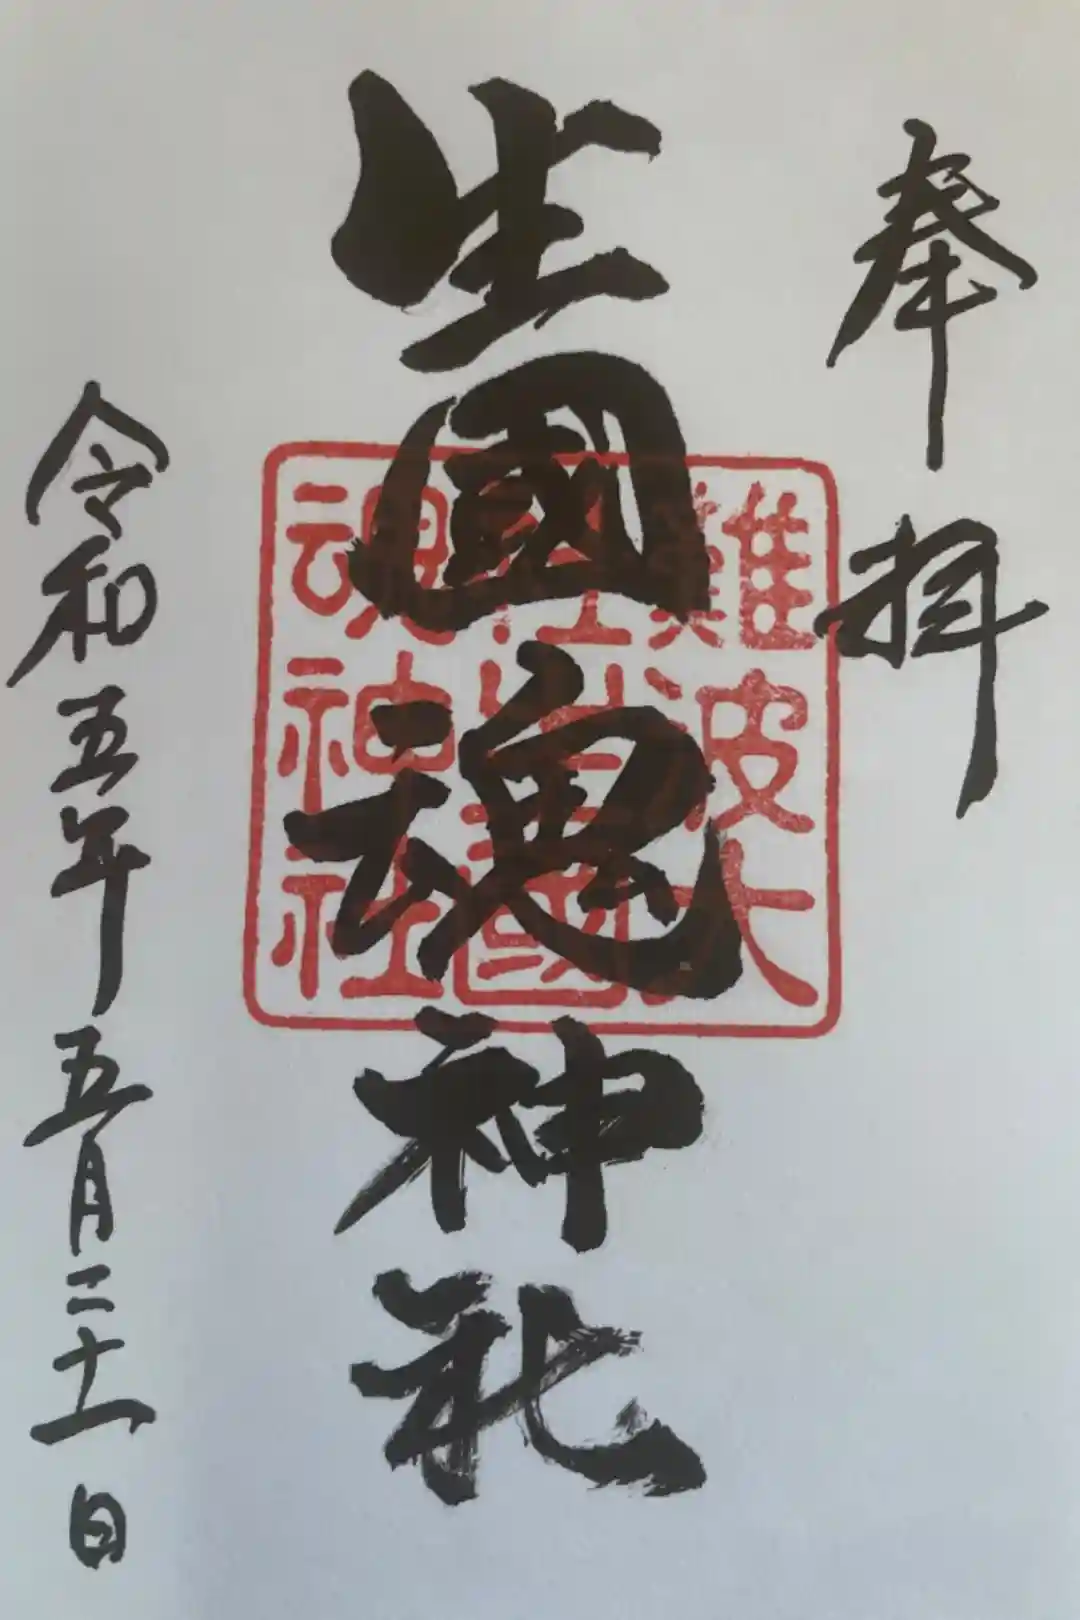 奉拝
難波大
社生國
魂神社
生國魂神社
令和五年五月二十一日